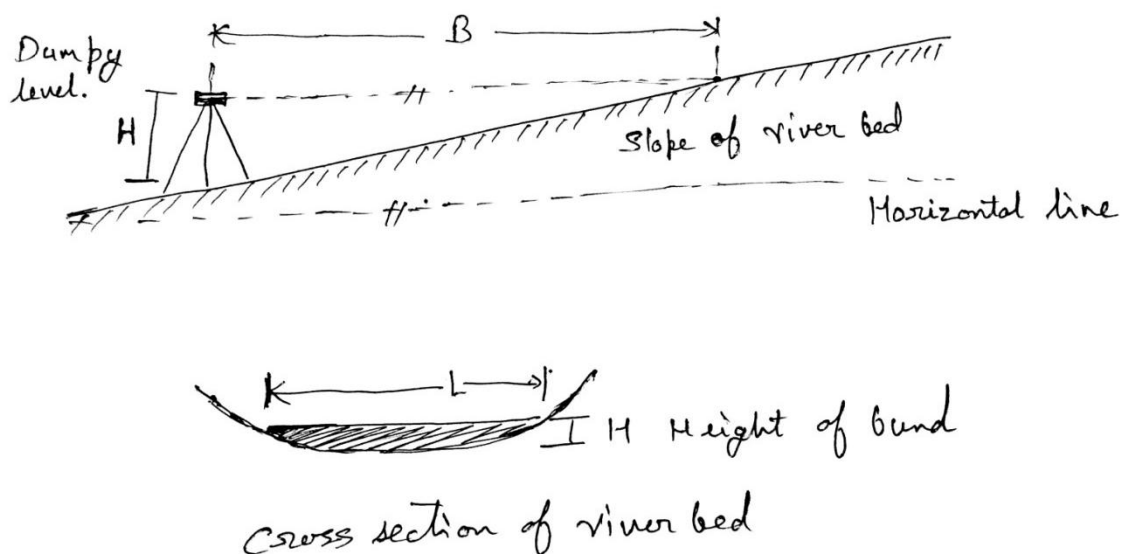 B
Dampy
level.
H
Slope of river bed
Horizontal line
L
H Height of bund
Cross section of river bed